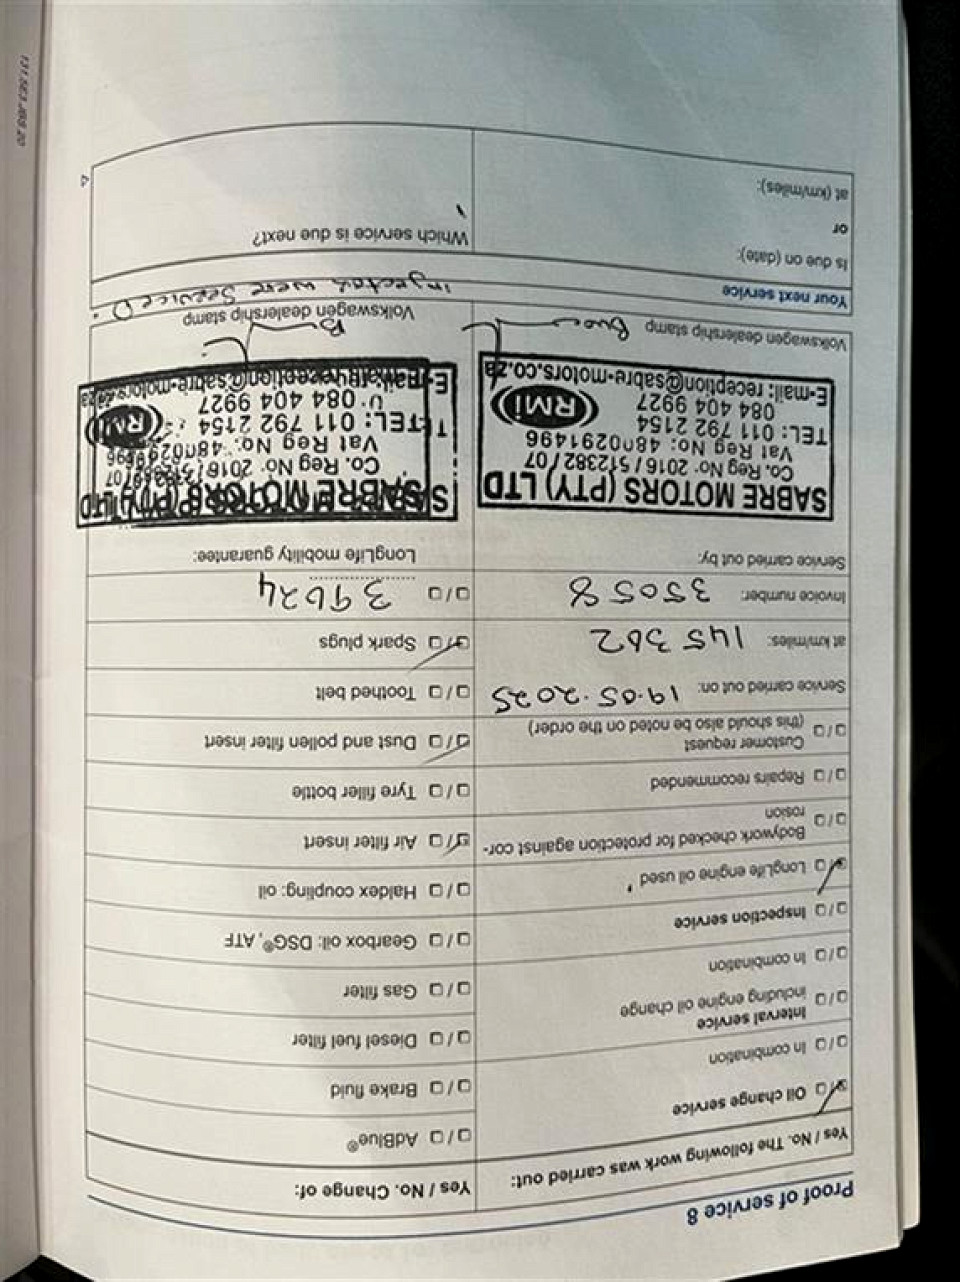 Proof of service 8
Yes / No. The following work was carried out:
Oil change service
In combination
Interval service
including engine oil change
In combination
Inspection service
LongLife engine oil used
Bodywork checked for protection against cor-
rosion
Repairs recommended
Customer request
(this should also be noted on the order)
Service carried out on: 19.05.2025
at km/miles: 145 302
Invoice number: 35058
Service carried out by:
SABRE MOTORS (PTY) LTD
Co. Reg No. 2016 / 512382 / 07
Vat Reg No: 4800291496
TEL: 011 792 2154
084 404 9927
RMi
E-mail: reception@sabre-motors.co.za
Volkswagen dealership stamp
Yes / No. Change of:
AdBlue®
Brake fluid
Diesel fuel filter
Gas filter
Gearbox oil: DSG®, ATF
Haldex coupling: oil
Air filter insert
Tyre filler bottle
Dust and pollen filter insert
Toothed belt
Spark plugs
LongLife mobility guarantee:
SABRE MOTORS (PTY) LTD
Co. Reg No. 2016 /
Vat Reg No.
TEL: 011 792 2154
084 404 9927
RMi
Volkswagen dealership stamp
injectors were serviced.
Your next service
Is due on (date):
or
at (km/miles):
Which service is due next?
131.5E3.JBS.20